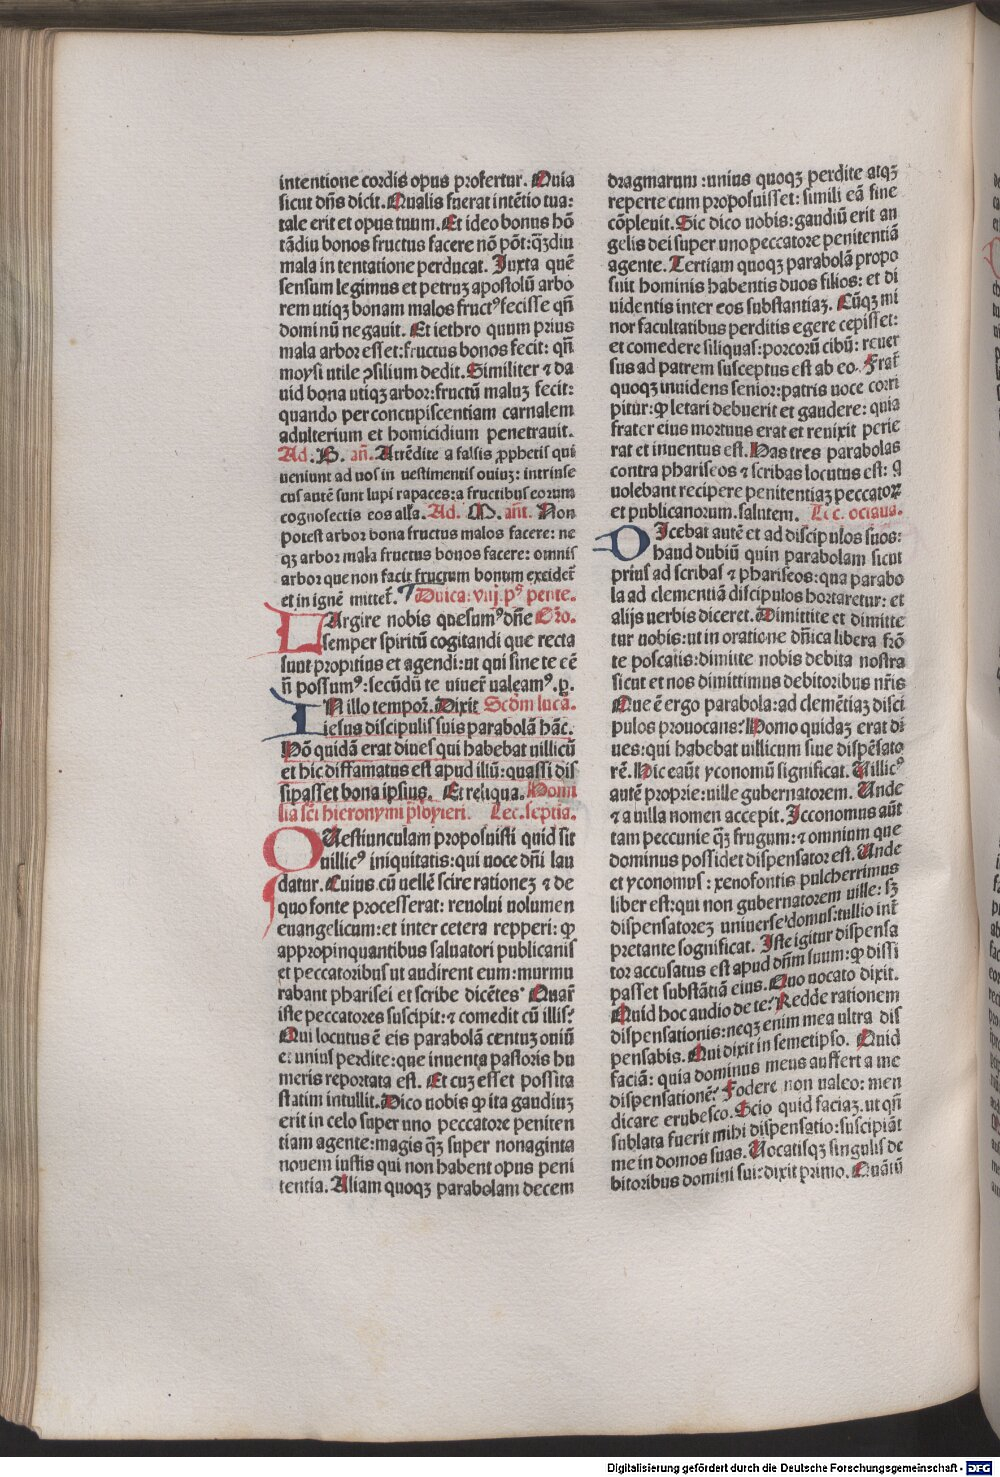 intentione cordis opus profertur. Quia
sicut dñs dicit. Qualis fuerat intētio tua:
tale erit et opus tuum. Et ideo bonus hō
tādiu bonos fructus facere nō pōt: qꝫdiu
mala in tentatione perducat. Iuxta quē
sensum legimus et petruꝫ apostolū arbo
rem utiqꝫ bonam malos fructꝰ fecisse qñ
dominū negauit. Et iethro quum prius
mala arbor esset: fructus bonos fecit: qñ
moysi utile ꝯsilium dedit. Similiter ⁊ da
uid bona utiqꝫ arbor: fructū maluꝫ fecit:
quando per concupiscentiam carnalem
adulterium et homicidium penetrauit.
Ad. B. añ. Attēdite a falsis ꝓphetis qui
ueniunt ad uos in uestimentis ouiuꝫ: intrinse
cus autē sunt lupi rapaces: a fructibus eorum
cognoscetis eos alľa. Ad. M. añt. Non
potest arbor bona fructus malos facere: ne
qꝫ arbor mala fructus bonos facere: omnis
arbor que non facit fructum bonum excidet̄
et in ignē mittet̄. Dnica: viij. pꝰ pente.
LArgire nobis quesumꝰ dñe Oro.
semper spiritū cogitandi que recta
sunt propitius et agendi: ut qui sine te eē
ñ possumꝰ: secūdū te uiuer̄ ualeamꝰ. p.
IN illo tempor̄. Dixit Scđm lucā.
iesus discipulis suis parabolā hāc.
Hō quidā erat diues qui habebat uillicū
et hic diffamatus est apud illū: quassi dis
sipasset bona ipsius. Et reliqua. Homi
lia scī hieronymi p̄sbyteri. Lec. septīa.
QUestiunculam proposuisti quid sit
uillicꝰ iniquitatis: qui uoce dñi lau
datur. Cuius cū uellē scire rationeꝫ ⁊ de
quo fonte processerat: reuolui uolumen
euangelicum: et inter cetera repperi: ꝙ
appropinquantibus saluatori publicanis
et peccatoribus ut audirent eum: murmu
rabant pharisei et scribe dicētes. Quar̄
iste peccatores suscipit: ⁊ comedit cū illis?
Qui locutus ē eis parabolā centuꝫ ouiū
et unius perdite: que inuenta pastoris hu
meris reportata est. Et cuꝫ esset possita
statim intullit. Dico uobis ꝙ ita gaudiuꝫ
erit in celo super uno peccatore peniten
tiam agente: magis qꝫ super nonaginta
nouem iustis qui non habent opus peni
tentia. Aliam quoqꝫ parabolam decem
dragmarum: unius quoqꝫ perdite atqꝫ
reperte cum proposuisset: simili eā fine
cōpleuit. Sic dico uobis: gaudiū erit an
gelis dei super uno peccatore penitentiā
agente. Tertiam quoqꝫ parabolā propo
suit hominis habentis duos filios: et di
uidentis inter eos substantiaꝫ. Cūqꝫ mi
nor facultatibus perditis egere cepisset:
et comedere siliquas: porcorū cibū: reuer
sus ad patrem susceptus est ab eo. Frat̄
quoqꝫ inuidens senior: patris uoce corri
pitur: ꝙ letari debuerit et gaudere: quia
frater eius mortuus erat et reuixit perie
rat et inuentus est. Has tres parabolas
contra phariseos ⁊ scribas locutus est: q
uolebant recipere penitentiaꝫ peccatoꝝ
et publicanorum. salutem. Lec. octaua.
DIcebat autē et ad discipulos suos:
haud dubiū quin parabolam sicut
prius ad scribas ⁊ phariseos: qua parabo
la ad clementiā discipulos hortaretur: et
alijs uerbis diceret. Dimittite et dimitte
tur uobis: ut in oratione dñica libera frō
te poscatis: dimitte nobis debita nostra
sicut et nos dimittimus debitoribus nr̄is
Que ē ergo parabola: ad clemētiaꝫ disci
pulos prouocans? Homo quidaꝫ erat di
ues: qui habebat uillicum siue dispēsato
rē. Hic eaūt yconomū significat. Uillicꝰ
autē proprie: uille gubernatorem. Unde
⁊ a uilla nomen accepit. Icconomus aūt
tam peccunie qꝫ frugum: ⁊ omnium que
dominus possidet dispensator est. Unde
et yconomus: xenofontis pulcherrimus
liber est: qui non gubernatorem uille: sꝫ
dispensatoreꝫ uniuerse domus: tullio int̄
pretante sognificat. Iste igitur dispensa
tor accusatus est apud dñm suum: ꝙ dissi
passet substātiā eius. Quo uocato dixit.
Quid hoc audio de te? Redde rationem
dispensationis: neqꝫ enim mea ultra dis
pensabis. Qui dixit in semetipso. Quid
faciā: quia dominus meus auffert a me
dispensationē? Fodere non ualeo: men
dicare erubesco. Scio quid faciaꝫ. ut qñ
sublata fuerit mihi dispensatio: suscipiāt
me in domos suas. Uocatisqꝫ singulis de
bitoribus domini sui: dixit primo. Quātū
Digitalisierung gefördert durch die Deutsche Forschungsgemeinschaft - DFG